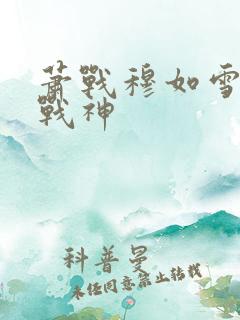 萧戰穆如雪
戰神
科普曼
未经同意禁止转载